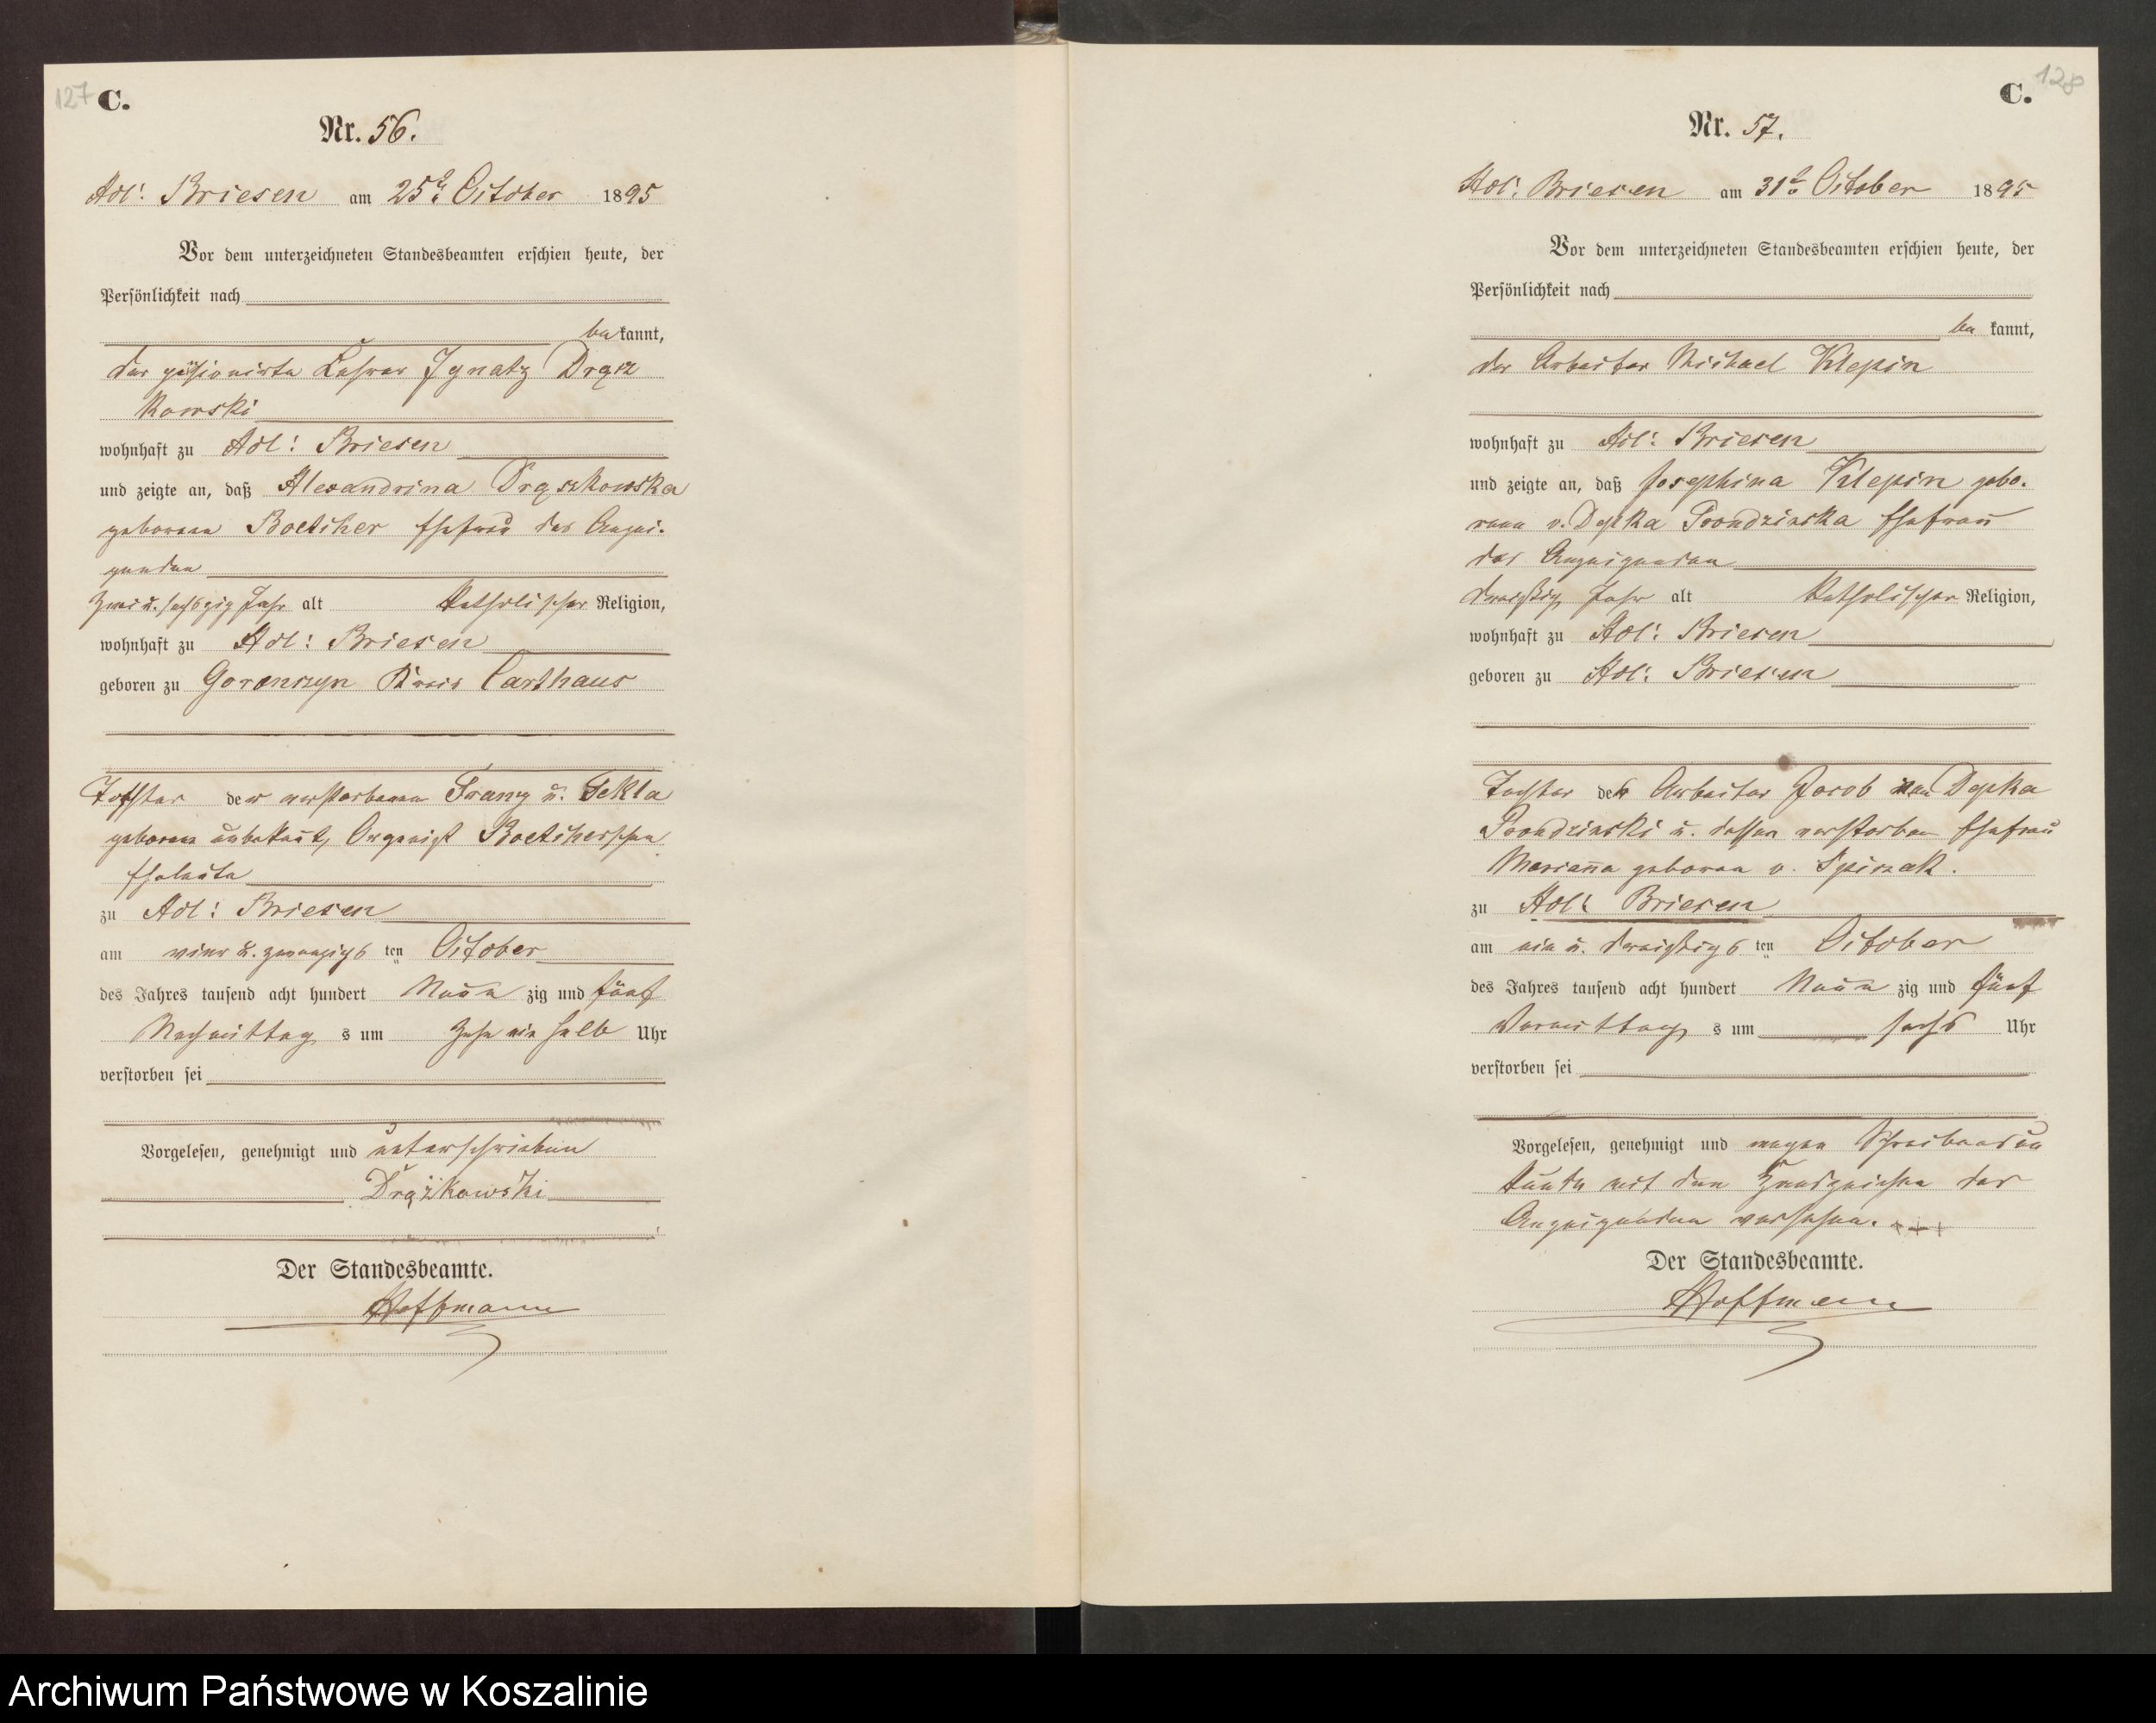 127 C.
Nr. 56.
Adl: Briesen am 25t October 1895
Vor dem unterzeichneten Standesbeamten erschien heute, der
Persönlichkeit nach
be kannt,
der Lehrer Ignatz Drąsz
kowski
wohnhaft zu Adl: Briesen
und zeigte an, daß Alexandrina Drąszkowska
geborene Boetcher Ehefrau des Anzei-
genden
zwei u. sechszig Jahr alt katholischer Religion,
wohnhaft zu Adl: Briesen
geboren zu Goronczyn Kreis Carthaus
Tochter der verstorbenen Franz u. Tekla
geborene unbekannt, Organist Boetcherschen
Eheleute
zu Adl: Briesen
am vier u. zwanzigs ten October
des Jahres tausend acht hundert Neun zig und fünf
Nachmittag s um Zehn ein halb Uhr
verstorben sei
Vorgelesen, genehmigt und unterschrieben
Drążkowski
Der Standesbeamte.
Hoffmann
C. 128
Nr. 57.
Adl: Briesen am 31t October 1895
Vor dem unterzeichneten Standesbeamten erschien heute, der
Persönlichkeit nach
be kannt,
der Arbeiter Michael Klepin
wohnhaft zu Adl: Briesen
und zeigte an, daß Josephina Klepin gebo-
rene v. Depka Prondzinska Ehefrau
des Anzeigenden
dreißig Jahr alt katholischer Religion,
wohnhaft zu Adl: Briesen
geboren zu Adl: Briesen
Tochter des Arbeiter Jacob von Depka
Prondzinski u. dessen verstorben Ehefrau
Marianna geborene v. Spiczak.
zu Adl: Briesen
am ein u. dreißigs ten October
des Jahres tausend acht hundert Neun zig und fünf
Vormittag s um sechs Uhr
verstorben sei
Vorgelesen, genehmigt und wegen Schreibensun
kunde mit den Handzeichen des
Anzeigenden versehen. +++
Der Standesbeamte.
Hoffmann
Archiwum Państwowe w Koszalinie